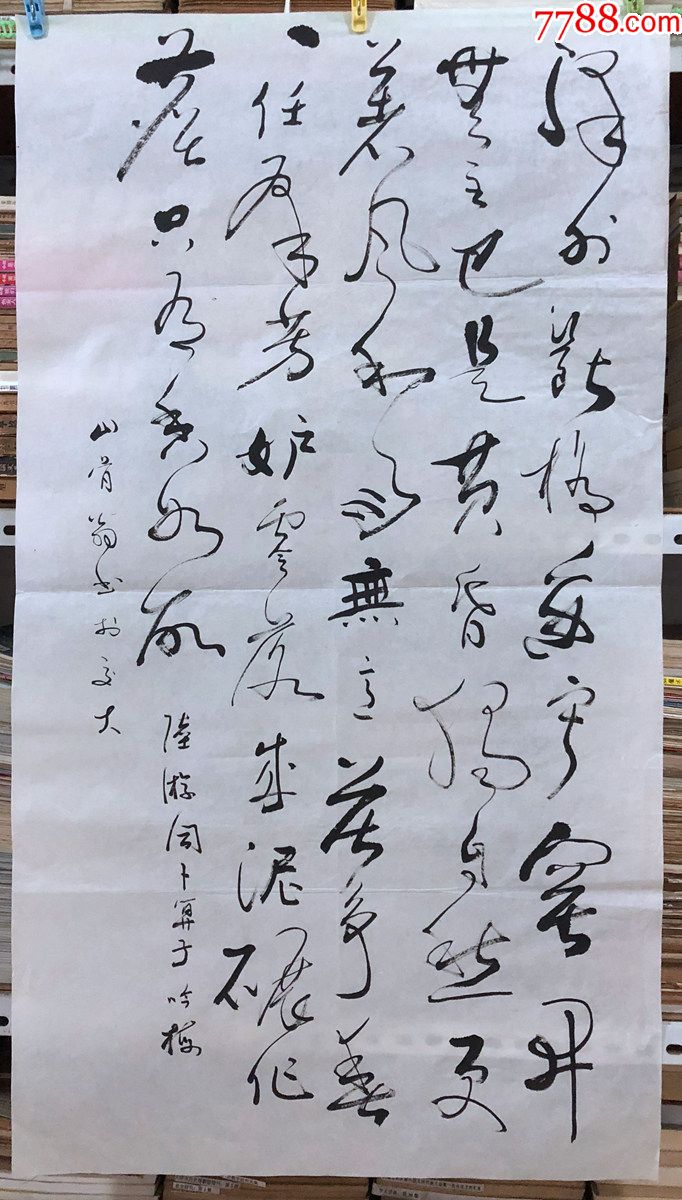 7788.com
驿外斷橋邊寂寞開
無主已是黄昏獨自愁更
著風和雨無意苦争春
一任群芳妒零落成泥碾作
塵只有香如故
陸游词卜算子吟梅
山骨翁书於交大